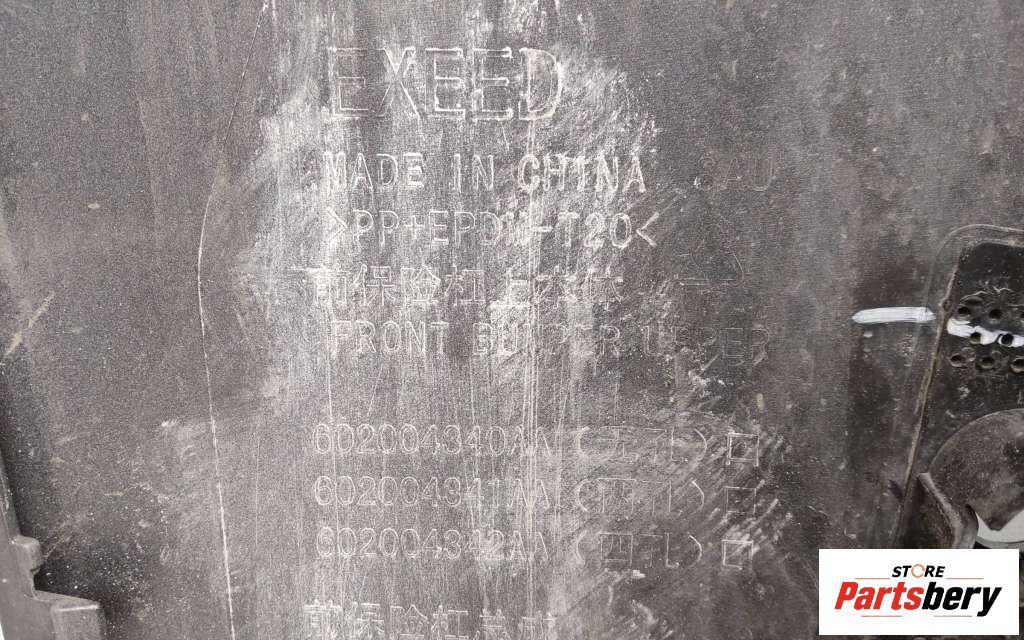 EXEED
MADE IN CHINA
>PP+EPDM-T20<
前保险杠上本体
FRONT BUMPER UPPER
602004340AA
602004341AA
602004342AA (四孔)
前保险杠总成
STORE
Partsbery